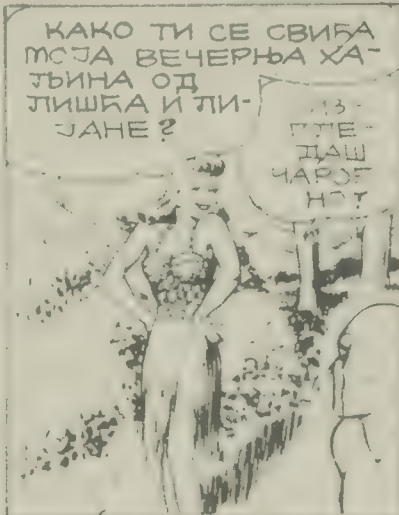 КАКО ТИ СЕ СВИЂА
МОЈА ВЕЧЕРЊА ХА-
ЉИНА ОД
ЛИШЋА И ЛИ-
ЈАНЕ?
ИЗ-
ГЛЕ-
ДАШ